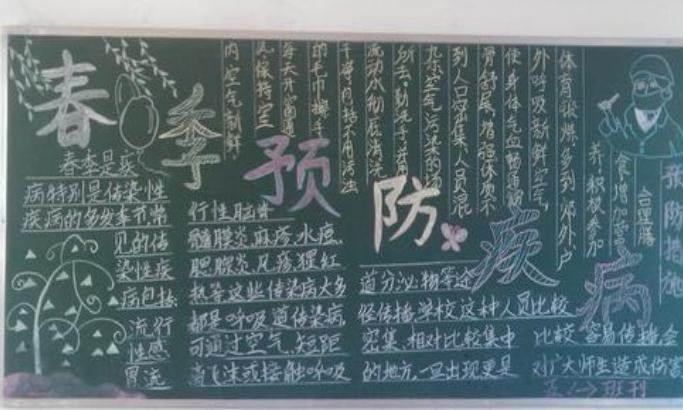 春季预防疾病
春季是疾
病特别是传染性
疾病的多发季节常
见的传
染性疾
病包括:
流行
性感
冒流
行性脑脊
髓膜炎.麻疹.水痘.
腮腺炎.风疹.猩红
热等这些传染病大多
都是呼吸道传染病,
可通过空气.短距
离飞沫或接触呼吸
道分泌物等途
径传播,学校这种人员比较
密集.相对比较集中
的地方,一旦出现更是
比较容易传播,会
对广大师生造成伤害
预防措施
合理膳
食,增加营
养,积极参加
体育锻炼,多到郊外,户
外呼吸新鲜空气,
使身体气血畅通,
骨舒展,增强体质.不
到人口密集,人员混
杂,空气污染的场
所去.勤洗手,并用
流动水彻底清洗
干净,包括不用污浊
的毛巾擦手
每天开窗通
风,保持室
内空气新鲜
五(一)班刊